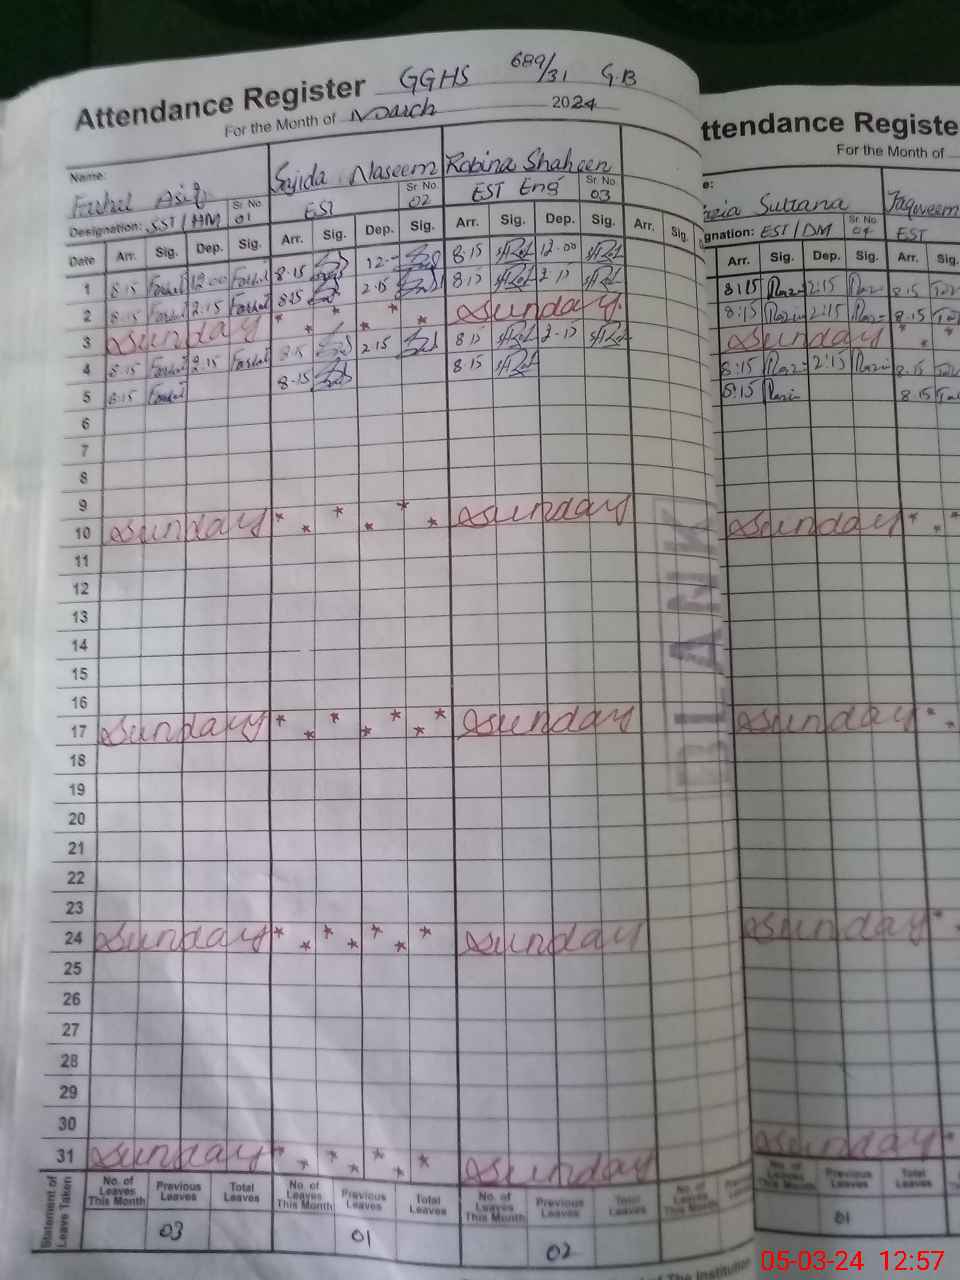 Attendance Register GGHS 689/31 G.B
For the Month of March 2024
Name: Sajida Naseem Robina Shaheen
Designation: SST/HM Sr. No. 01 EST Sr. No. 02 EST Eng Sr. No. 03
Date Arr. Sig. Dep. Sig. Arr. Sig. Dep. Sig. Arr. Sig. Dep. Sig. Arr. Sig.
1 8:15 12:00 8:15 12 8:15 12:00
2 8:15 2:15 8:15 2:15 8:15 2:15
3 Sunday * * * * * Sunday
4 8:15 2:15 8:15 2:15 8:15 2:15
5 8:15 8:15 8:15
6
7
8
9
10 Sunday * * * * * * Sunday
11
12
13
14
15
16
17 Sunday * * * * * * * Sunday
18
19
20
21
22
23
24 Sunday * * * * * * * Sunday
25
26
27
28
29
30
31 Sunday * * * * * * Sunday
Statement of Leave Taken
No. of Leaves This Month Previous Leaves Total Leaves No. of Leaves This Month Previous Leaves Total Leaves No. of Leaves This Month Previous Leaves Total Leaves No. of Leaves This Month
03 01 02
BLANK
ttendance Registe
For the Month of
e: Sultana
gnation: EST/DM Sr. No. 04 EST
Arr. Sig. Dep. Sig. Arr. Sig.
8:15 2:15 8:15
8:15 2:15 8:15
Sunday * *
8:15 2:15 8:15
8:15 8:15
Sunday * * *
Sunday * *
Sunday *
Sunday
No. of Leaves This Month Previous Leaves Total Leaves
01
The Institution
05-03-24 12:57